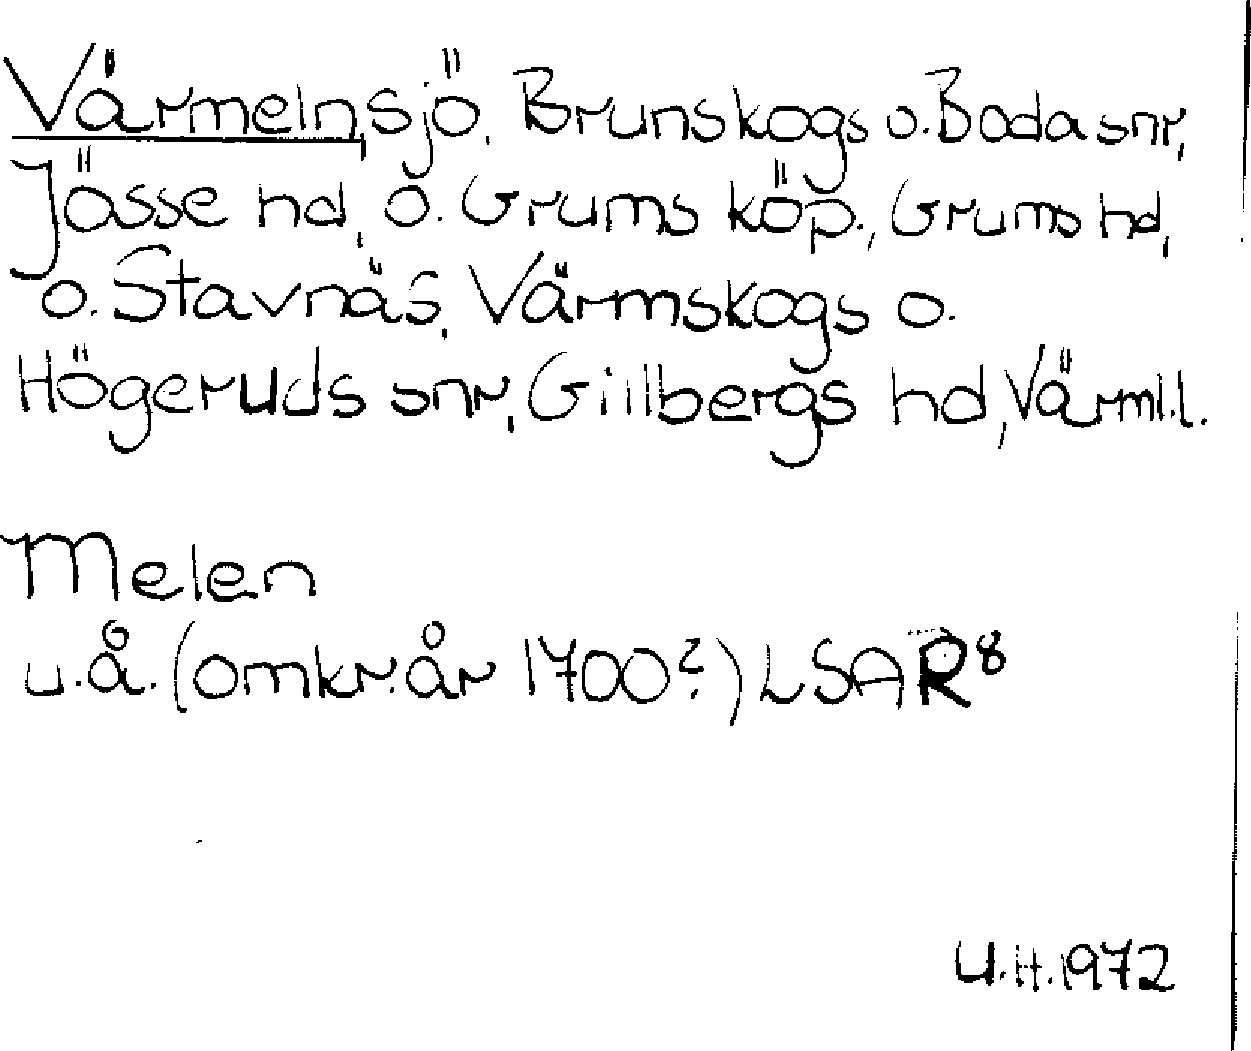 Värmeln, sjö, Brunskogs o. Boda snr,
Jösse hd, o. Grums köp., Grums hd,
o. Stavnäs, Värmskogs o.
Högeruds snr, Gillbergs hd, Värml.
Melen
u.å. (omkr. år 1700?) LSA R8
U.H. 1972